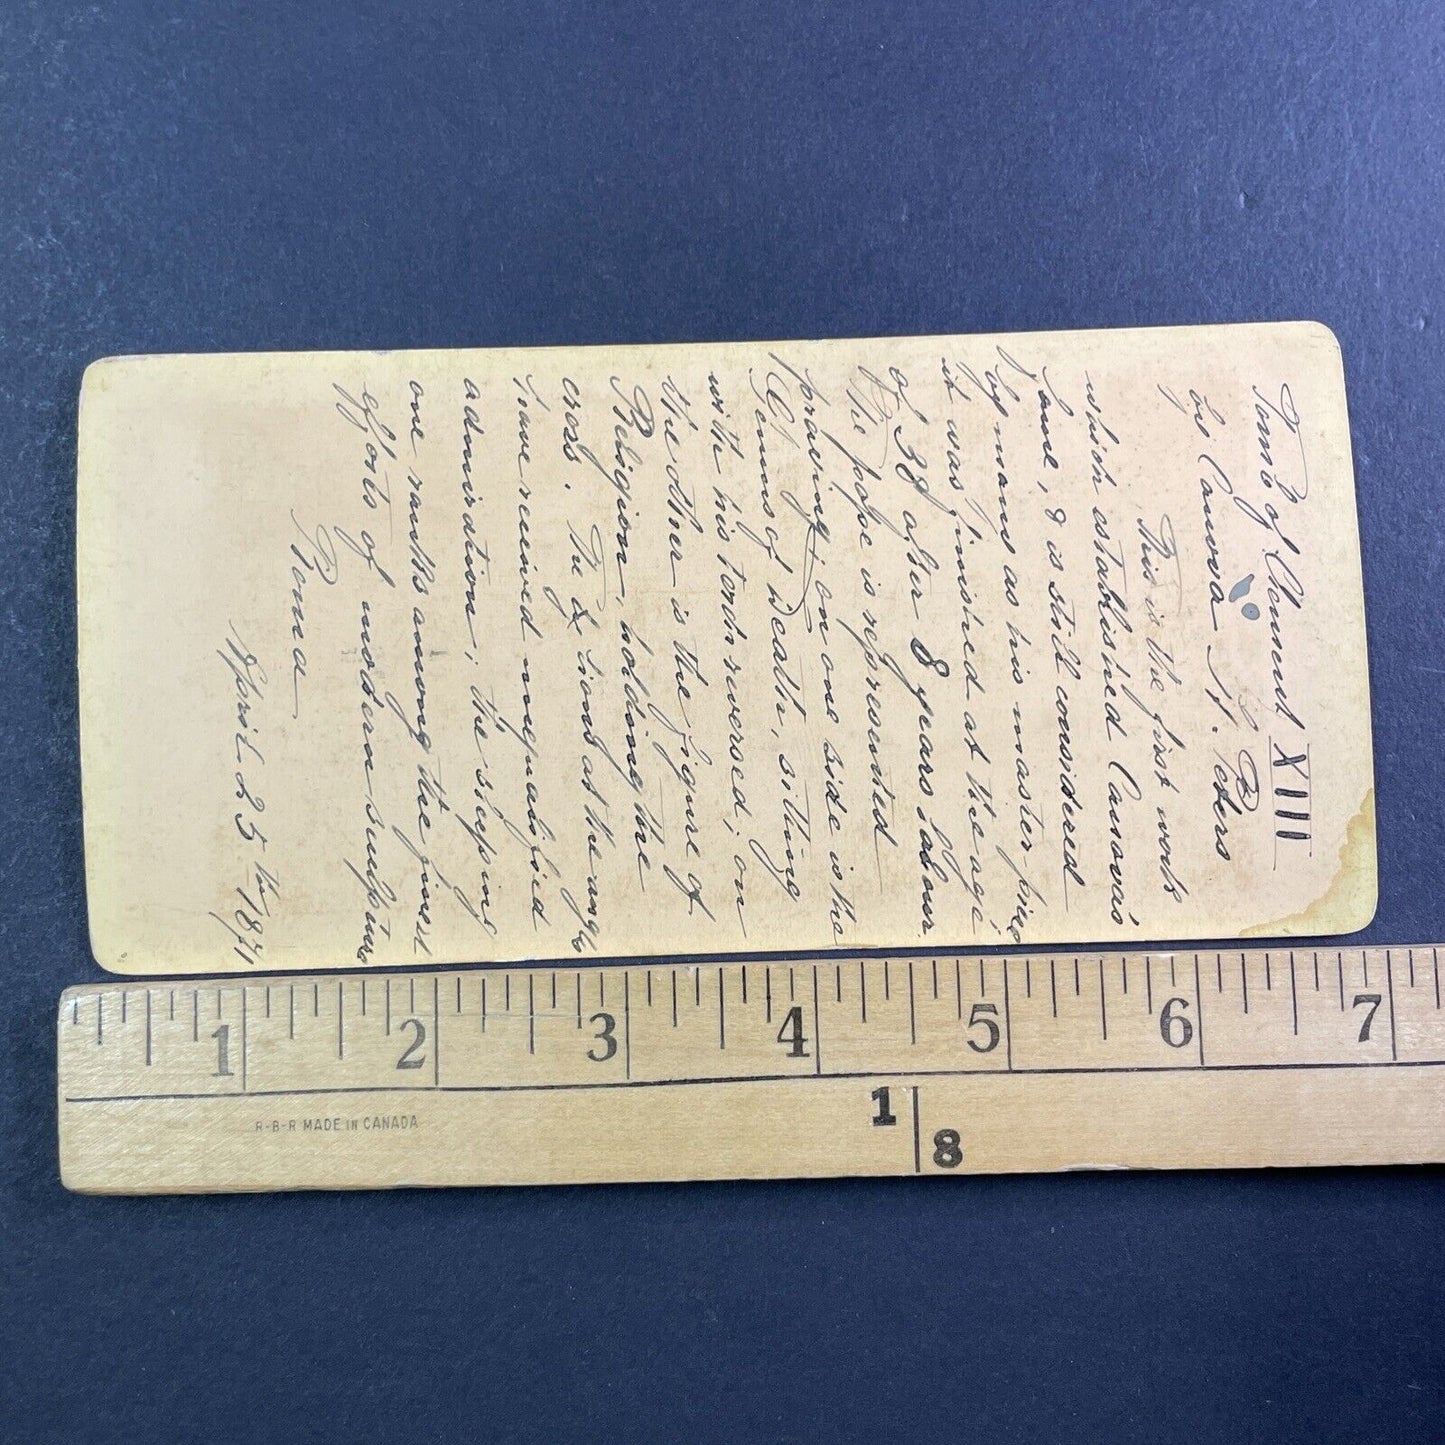 Tomb of Clement XIII
by Canova St. Peters
This is the first work
which established Canova's
fame, & is still considered
by many as his master piece
it was finished at the age
of 38 after 8 years labour.
The pope is represented
praying; on one side is the
Genius of Death, sitting
with his torch reversed; on
the other is the figure of
Religion, holding the
cross. The 2 lions at the angles
have received unqualified
admiration; the sleeping
one ranks among the finest
efforts of modern sculpture
Roma
April 25th 1871
1 2 3 4 5 6 7
1
8
R-B-R MADE IN CANADA